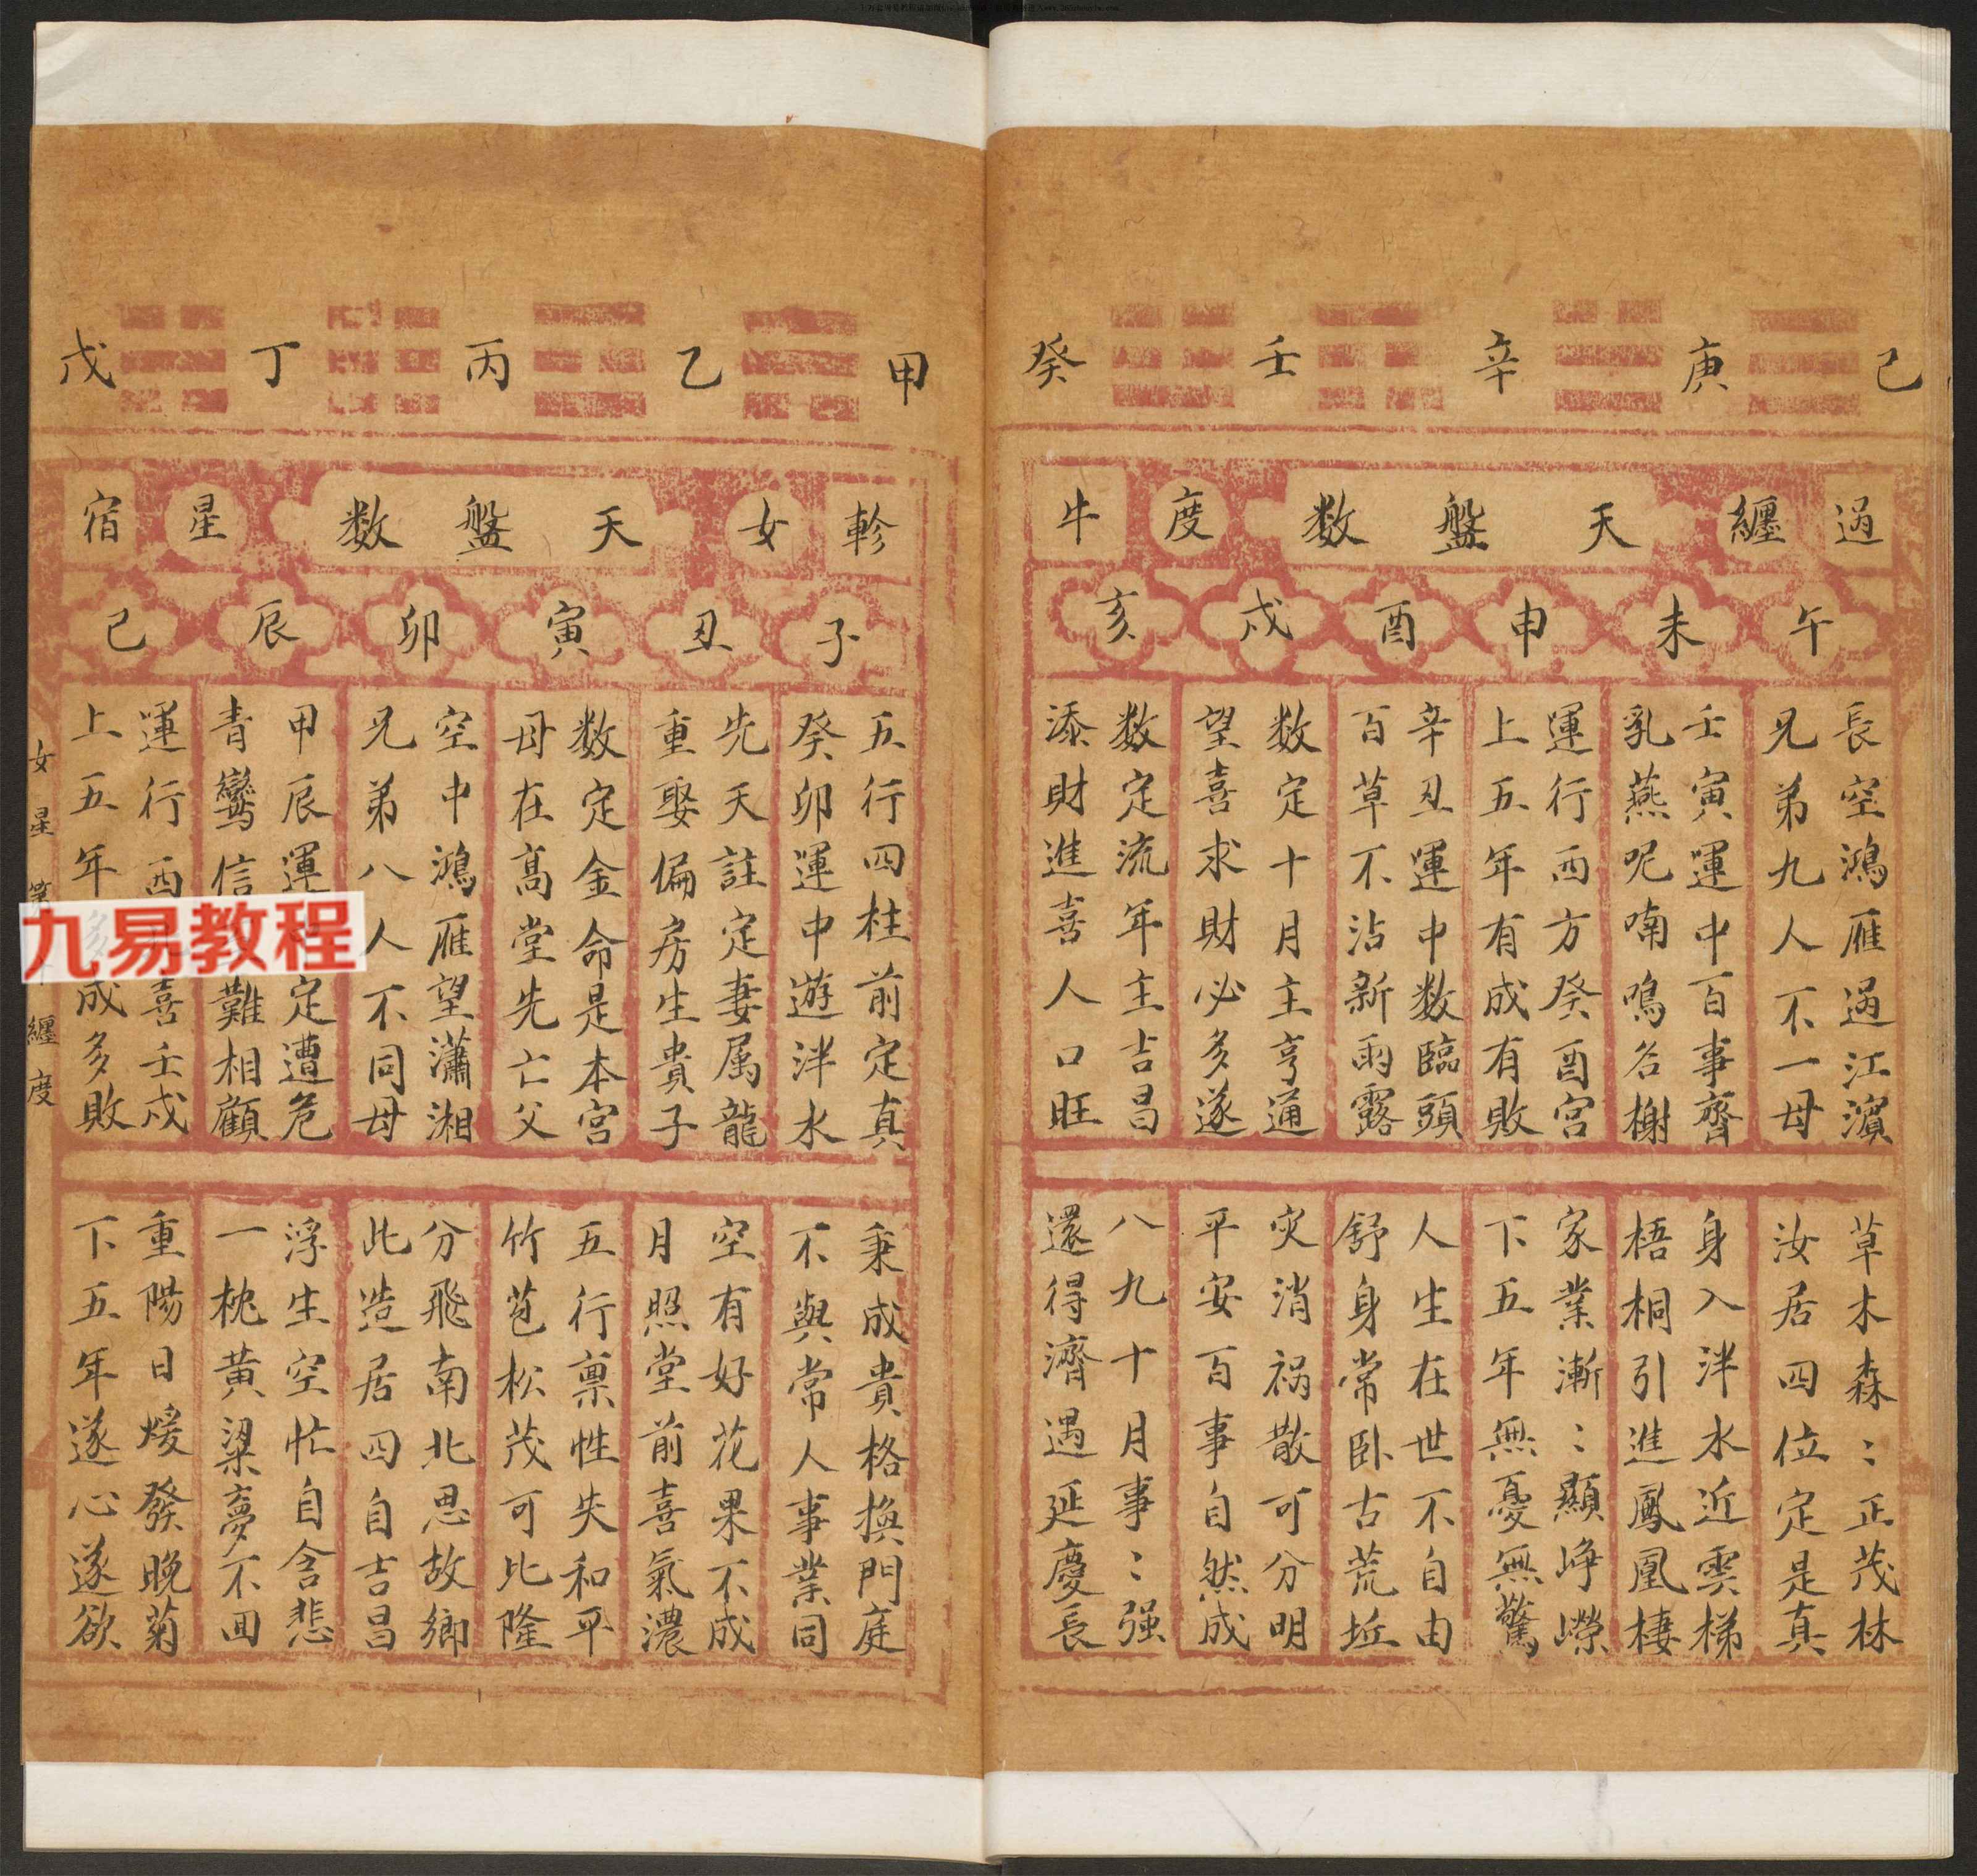 己 庚 辛 壬 癸
過 纏 天 盤 数 度 牛
午 未 申 酉 戌 亥
長空鴻雁過江濵
兄弟九人不一母
壬寅運中百事齊
乳燕呢喃鳴谷榭
運行西方癸酉宮
上五年有成有敗
辛丑運中数臨頭
百草不沾新雨露
数定十月主亨通
望喜求財必多遂
数定流年主吉昌
添財進喜人口旺
草木森:正茂林
汝居四位定是真
身入泮水近雲梯
梧桐引進鳳凰棲
家業漸:顯崢嶸
下五年無憂無驚
人生在世不自由
舒身常卧古荒坵
灾消禍散可分明
平安百事自然成
八九十月事:强
還得濟遇延慶長
甲 乙 丙 丁 戊
軫 女 天 盤 数 星 宿
子 丑 寅 卯 辰 巳
五行四柱前定真
癸卯運中遊泮水
先天註定妻属龍
重娶偏房生貴子
数定金命是本宮
母在髙堂先亡父
空中鴻雁望瀟湘
兄弟八人不同母
甲辰運定遭危
青鸞信難相顧
運行西喜壬戌
上五年多成多敗
秉成貴格換門庭
不與常人事業同
空有好花果不成
月照堂前喜氣濃
五行禀性失和平
竹苞松茂可比隆
分飛南北思故鄉
此造居四自吉昌
浮生空忙自含悲
一枕黄粱夢不回
重陽日煖發晚菊
下五年遂心遂欲
女星 纏度
九易教程